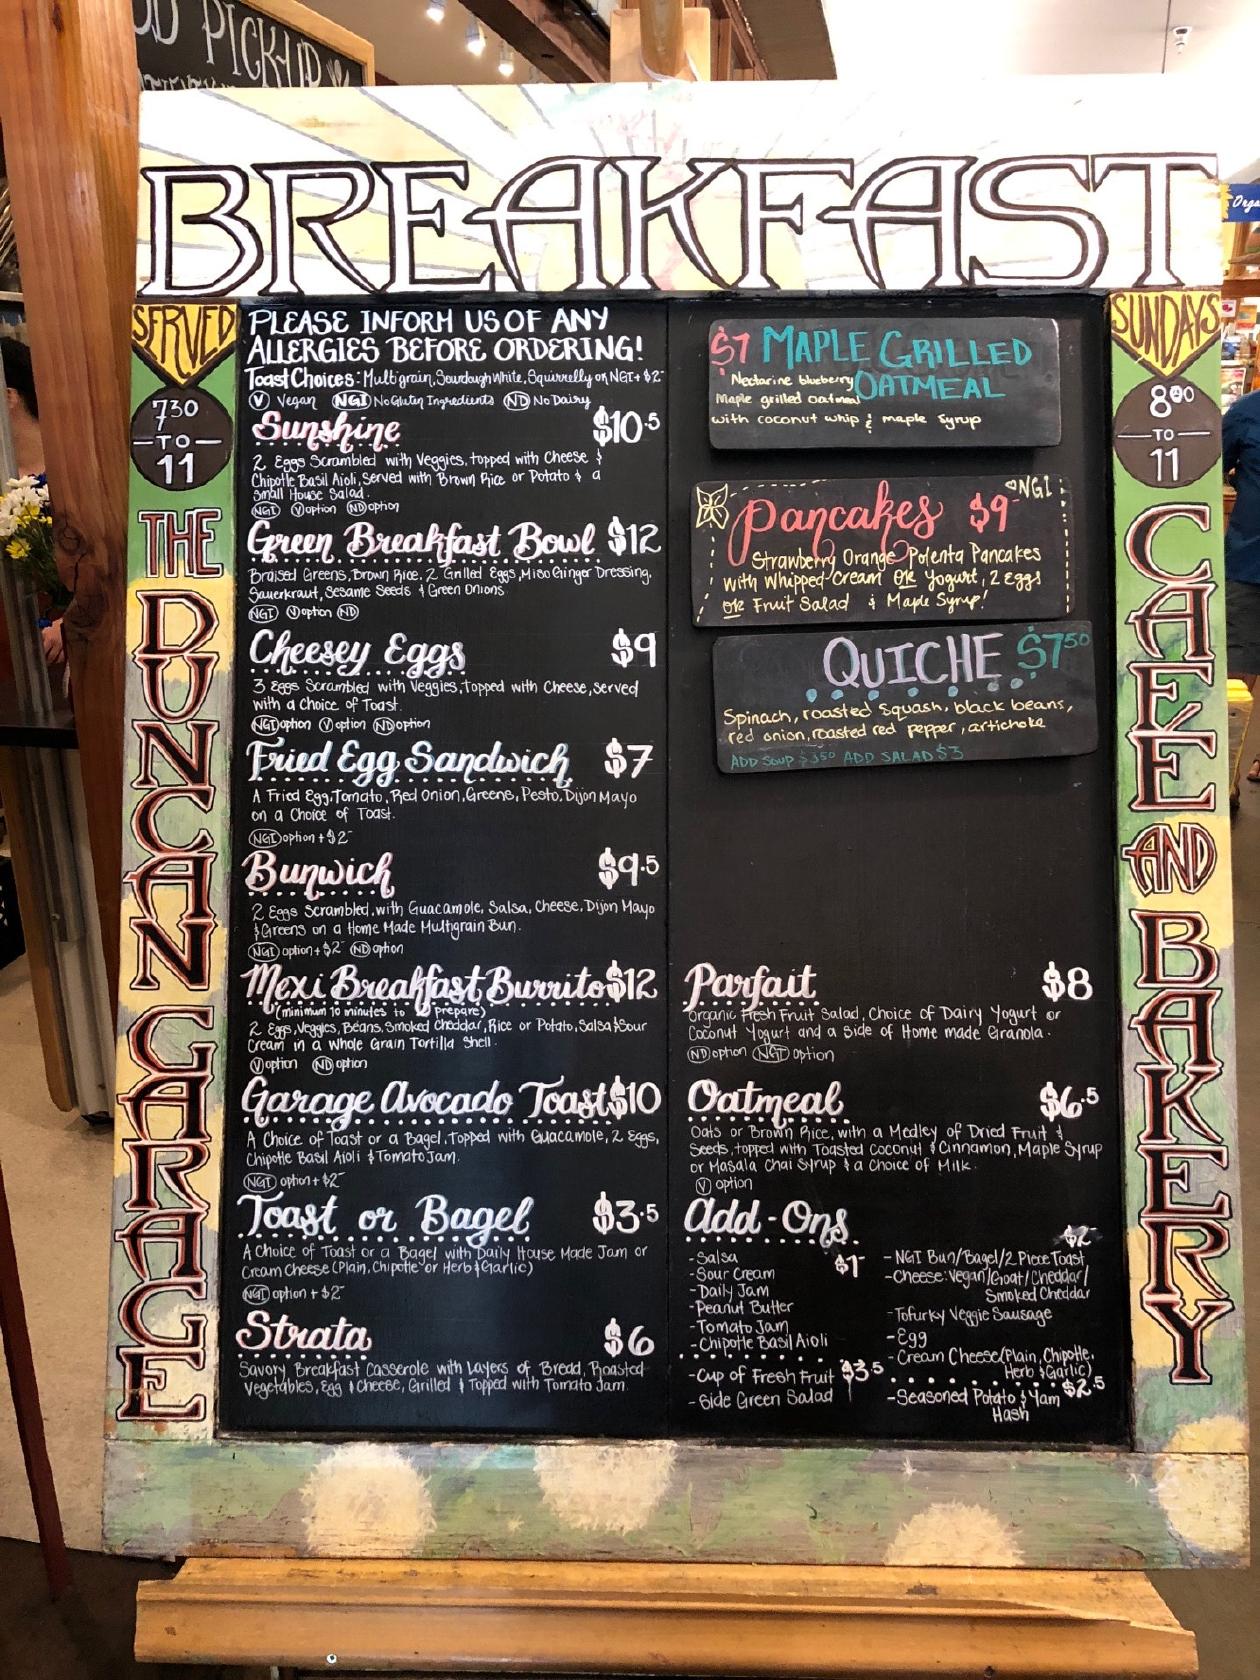 PICK-UP
BREAKFAST
SERVED
7:30
-TO-
11
THE
DUNCAN
GARAGE
SUNDAYS
8:00
-TO-
11
CAFE
AND
BAKERY
PLEASE INFORM US OF ANY
ALLERGIES BEFORE ORDERING!
Toast Choices: Multigrain, Sourdough White, Squirrelly or NGI + $2-
(V) Vegan (NGI) No Gluten Ingredients (ND) No Dairy
Sunshine $10.5
2 Eggs Scrambled with Veggies, topped with Cheese &
Chipotle Basil Aioli, Served with Brown Rice or Potato & a
Small House Salad.
(NGI) (V) option (ND) option
Green Breakfast Bowl $12
Braised Greens, Brown Rice, 2 Grilled Eggs, Miso Ginger Dressing,
Sauerkraut, Sesame Seeds & Green Onions
(NGI) (V) option (ND)
Cheesey Eggs $9
3 Eggs Scrambled with Veggies, topped with Cheese, served
with a choice of Toast.
(NGI) option (V) option (ND) option
Fried Egg Sandwich $7
A Fried Egg, Tomato, Red Onion, Greens, Pesto, Dijon Mayo
on a Choice of Toast.
(NGI) option + $2-
Bunwich $9.5
2 Eggs Scrambled, with Guacamole, Salsa, Cheese, Dijon Mayo
& Greens on a Home Made Multigrain Bun.
(NGI) option + $2- (ND) option
Mexi Breakfast Burrito $12
(minimum 10 minutes to prepare)
2 Eggs, Veggies, Beans, Smoked Cheddar, Rice or Potato, Salsa & Sour
Cream in a Whole Grain Tortilla Shell.
(V) option (ND) option
Garage Avocado Toast $10
A Choice of Toast or a Bagel, Topped with Guacamole, 2 Eggs,
Chipotle Basil Aioli & Tomato Jam.
(NGI) option + $2-
Toast or Bagel $3.5
A Choice of Toast or a Bagel with Daily House Made Jam or
Cream Cheese (Plain, Chipotle or Herb & Garlic)
(NGI) option + $2-
Strata $6
Savory Breakfast Casserole with Layers of Bread, Roasted
Vegetables, Egg & Cheese, Grilled & Topped with Tomato Jam.
$7 MAPLE GRILLED
OATMEAL
Nectarine blueberry
Maple grilled oatmeal
with coconut whip & maple syrup
Pancakes $9- NGI
Strawberry Orange Polenta Pancakes
with Whipped Cream OR Yogurt, 2 eggs
OR Fruit Salad & Maple Syrup!
QUICHE $7.50
Spinach, roasted squash, black beans,
red onion, roasted red pepper, artichoke
ADD SOUP $3.50 ADD SALAD $3
Parfait $8
Organic Fresh Fruit Salad, Choice of Dairy Yogurt or
Coconut Yogurt and a side of Home made Granola.
(ND) option (NGI) option
Oatmeal $6.5
Oats or Brown Rice, with a Medley of Dried Fruit &
Seeds, topped with Toasted Coconut & Cinnamon, Maple Syrup
or Masala Chai Syrup & a Choice of Milk.
(V) option
Add-Ons
$1-
-Salsa
-Sour Cream
-Daily Jam
-Peanut Butter
-Tomato Jam
-Chipotle Basil Aioli
-Cup of Fresh Fruit $3.5
-Side Green Salad
$2-
-NGI Bun/Bagel/2 Piece Toast
-Cheese: Vegan/Goat/Cheddar/
Smoked Cheddar
-Tofurky Veggie Sausage
-Egg
-Cream Cheese (Plain, Chipotle,
Herb & Garlic)
$2.5
-Seasoned Potato & Yam
Hash